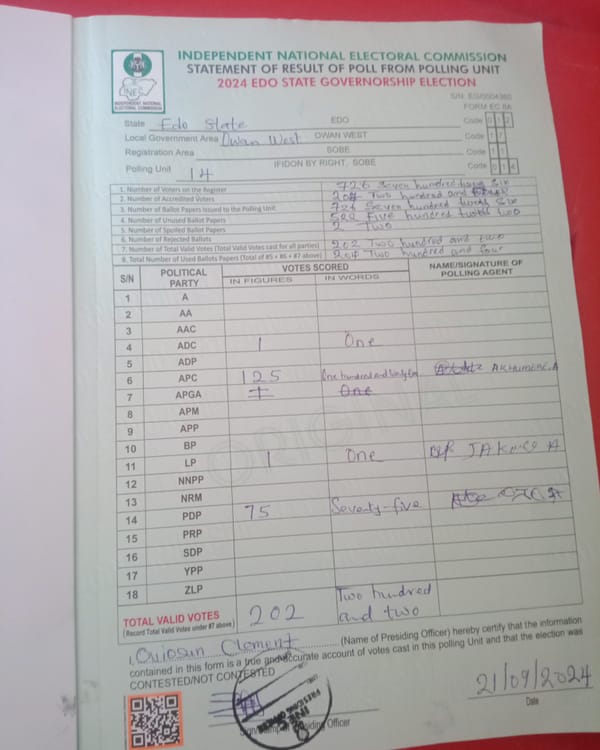 INDEPENDENT NATIONAL ELECTORAL COMMISSION
STATEMENT OF RESULT OF POLL FROM POLLING UNIT
2024 EDO STATE GOVERNORSHIP ELECTION
INEC
INDEPENDENT NATIONAL ELECTORAL COMMISSION
FORM EC 8A
State Edo State EDO Code 0 1 2
Local Government Area Owan West OWAN WEST Code 1 7
Registration Area SOBE Code 1 1
Polling Unit 14 IFIDON BY RIGHT, SOBE Code 0 1 4
1. Number of Voters on the Register 726 Seven hundred twenty Six
2. Number of Accredited Voters 204 Two hundred and
3. Number of Ballot Papers Issued to the Polling Unit 726 Seven hundred twenty Six
4. Number of Unused Ballot Papers 522 Five hundred twenty two
5. Number of Spoiled Ballot Papers 2 Two
6. Number of Rejected Ballots
7. Number of Total Valid Votes (Total Valid Votes cast for all parties) 202 Two hundred and two
8. Total Number of Used Ballots Papers (Total of #5 + #6 + #7 above) 204 Two hundred and four
S/N POLITICAL PARTY VOTES SCORED NAME/SIGNATURE OF POLLING AGENT
IN FIGURES IN WORDS
1 A
2 AA
3 AAC
4 ADC 1 One
5 ADP
6 APC 125 One hundred and twenty five
7 APGA 1 One
8 APM
9 APP
10 BP
11 LP 1 One
12 NNPP
13 NRM
14 PDP 75 Seventy-five
15 PRP
16 SDP
17 YPP
18 ZLP
TOTAL VALID VOTES 202 Two hundred and two
(Record Total Valid Votes under #7 above)
I, Clement (Name of Presiding Officer) hereby certify that the information
contained in this form is a true and accurate account of votes cast in this polling Unit and that the election was
CONTESTED/NOT CONTESTED
21/09/2024
Date
Presiding Officer
INEC
PRESIDING OFFICER